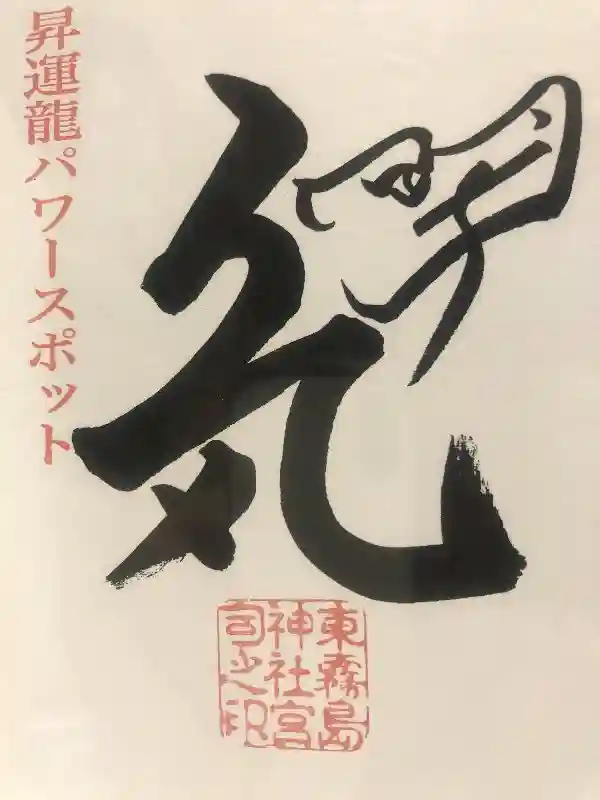 昇運龍パワースポット
気
東霧島
神社宮
司之印